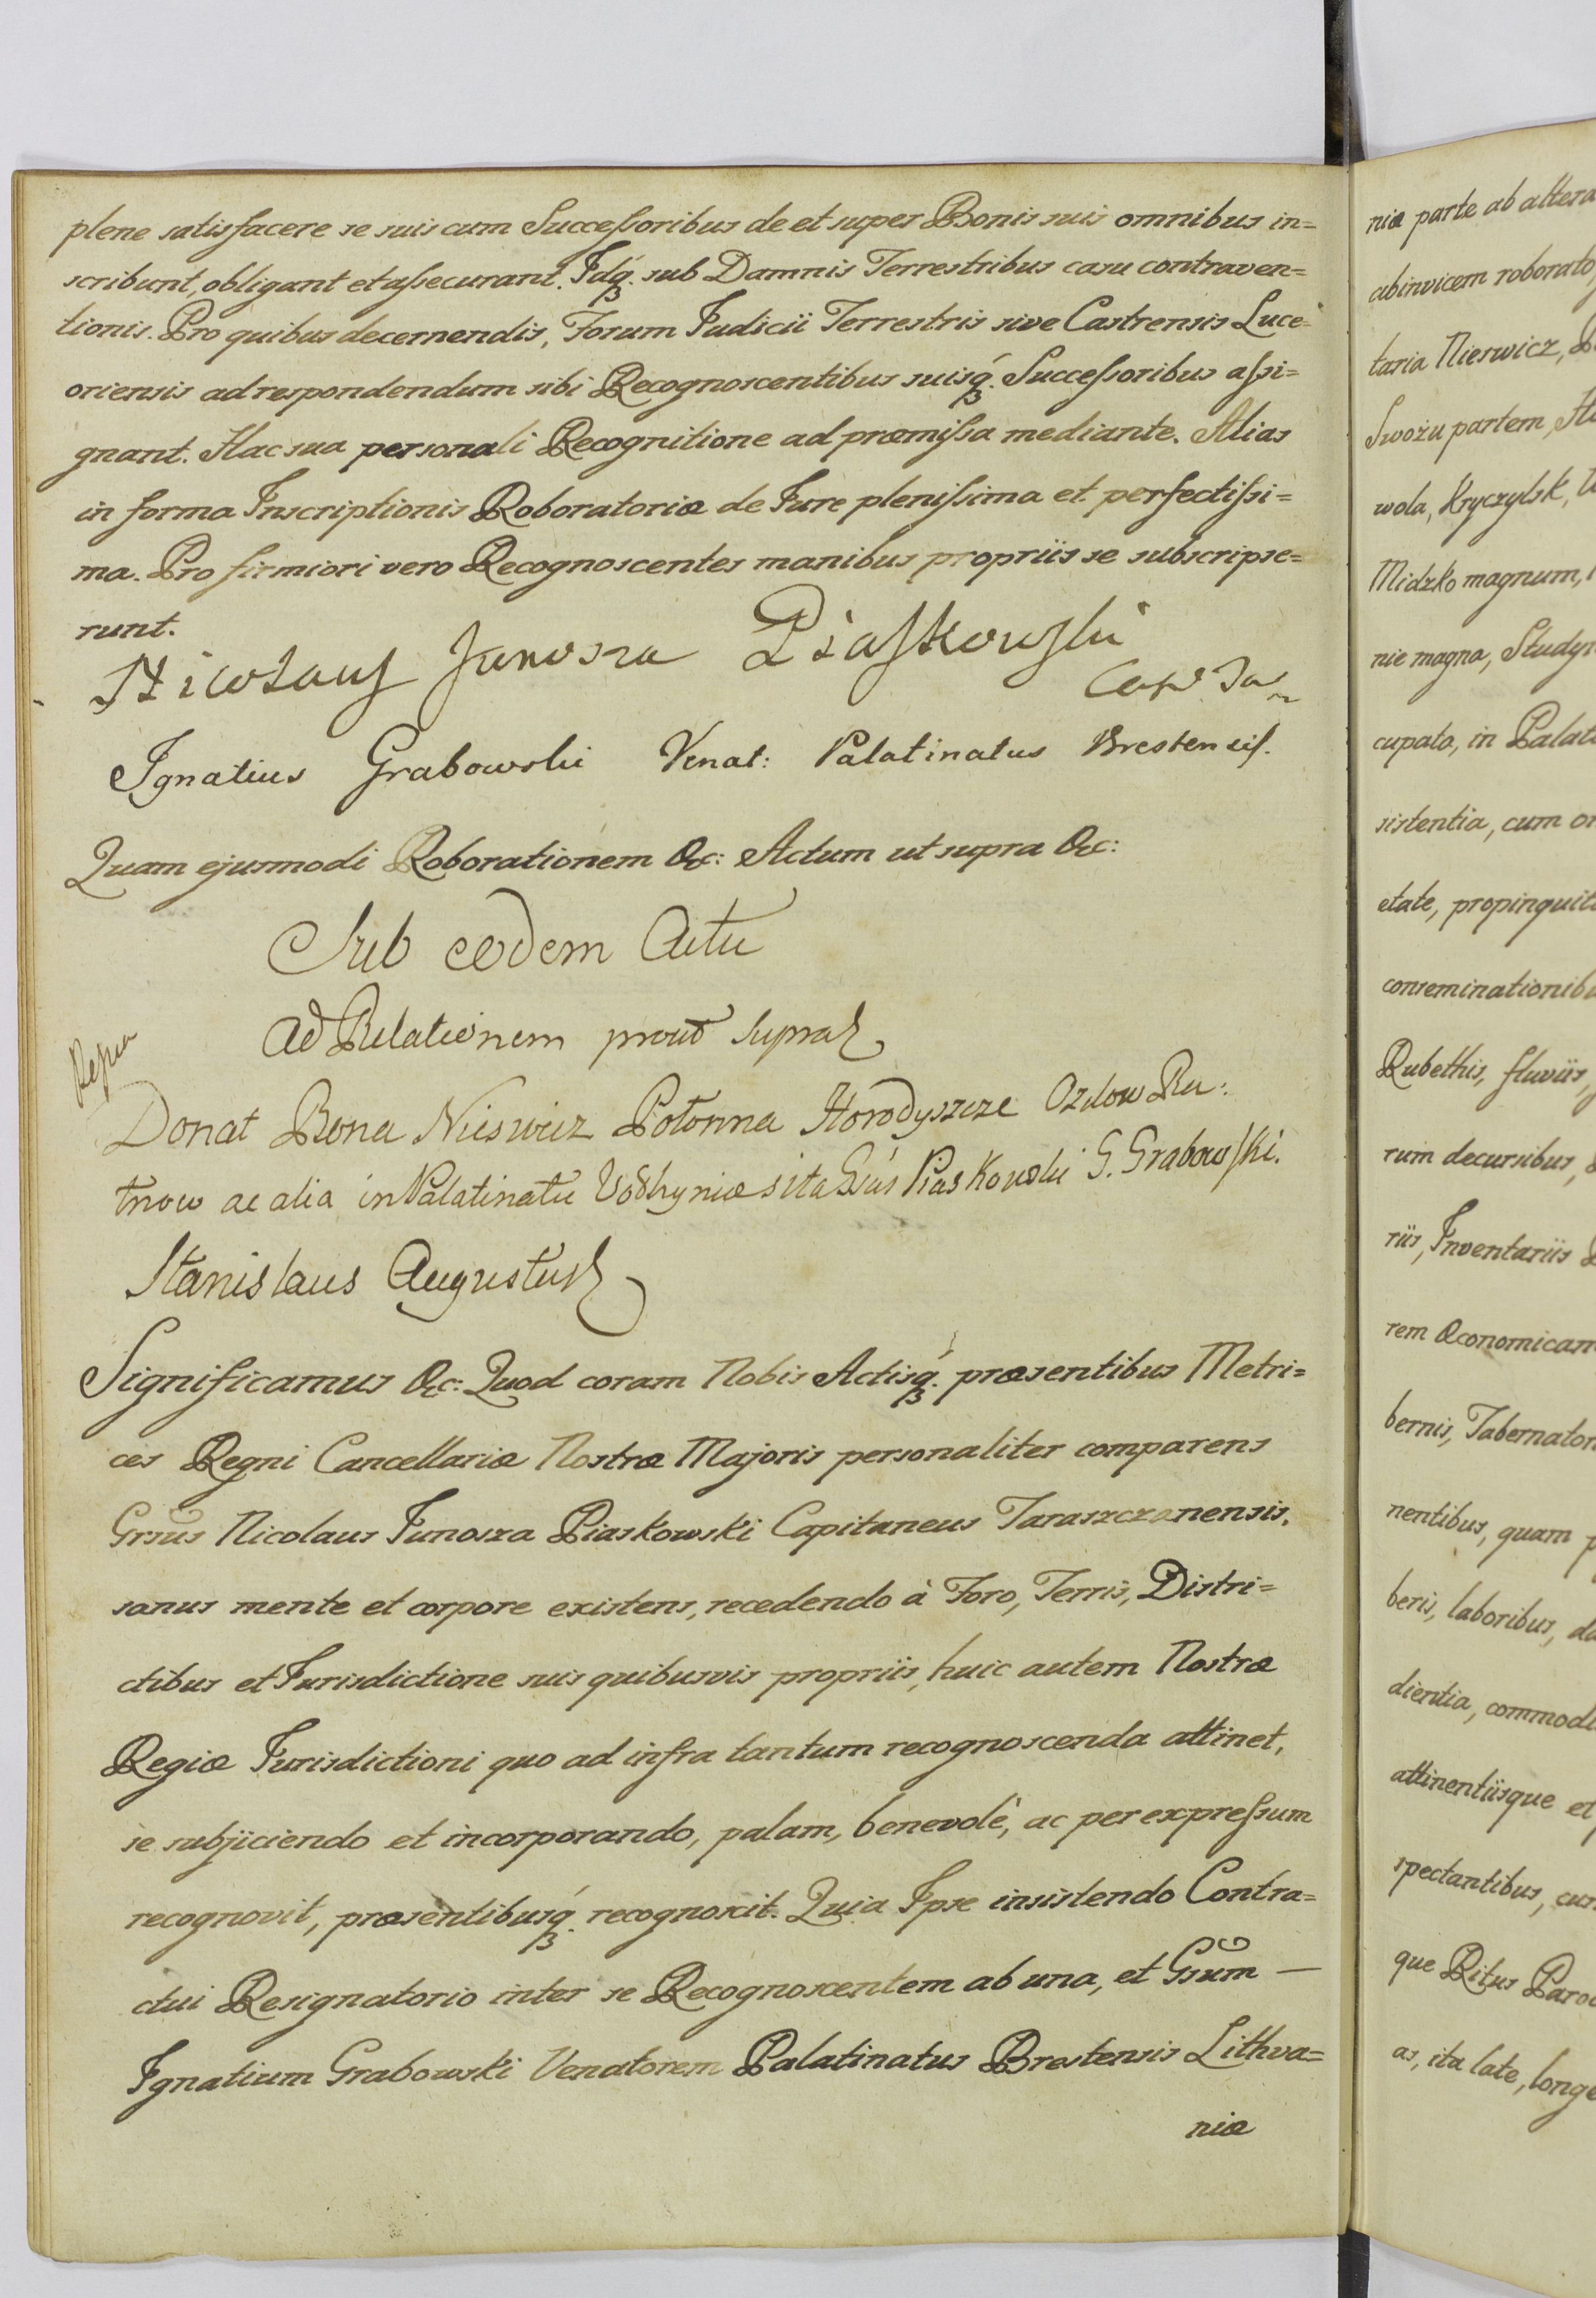 plene satisfacere se suis cum Successoribus de et super Bonis suis omnibus in=
scribunt, obligant et assecurant. Idq. sub Damnis Terrestribus casu contraven=
tionis. Pro quibus decernendis, Forum Judicii Terrestris sive Castrensis Luce=
oriensis ad respondendum sibi Recognoscentibus suisq. Successoribus assi=
gnant. Hac sua personali Recognitione ad præmissa mediante. Alias
in forma Inscriptionis Roboratoriæ de Jure plenissima et perfectissi=
ma. Pro firmiori vero Recognoscentes manibus propriis se subscripse=
runt.
Nicolaus Junosza Piaskowski
Capt Tar
Ignatius Grabowski Venat: Palatinatus Brestensis.
Quam ejusmodi Roborationem &c: Actum ut supra &c:
Sub eodem Actu
Ad Relationem prout supra
Donat Bona Nieswicz Połonna Horodyszcze Ozdow Ru:
tnow ac alia in Palatinatu Volhyniæ sita Gsus Piaskowski G. Grabowski.
Stanislaus Augustus
Significamus &c: Quod coram Nobis Actisq. præsentibus Metri=
ces Regni Cancellariæ Nostræ Majoris personaliter comparens
Grsus Nicolaus Junosza Piaskowski Capitaneus Taraszczanensis,
sanus mente et corpore existens, recedendo à Foro, Terris, Distri=
ctibus et Jurisdictione suis quibusvis propriis, huic autem Nostræ
Regiæ Jurisdictioni quo ad infra tantum recognoscenda attinet,
se subjiciendo et incorporando, palam, benevolè, ac per expressum
recognovit, præsentibusq. recognoscit. Quia Ipse insistendo Contra=
ctui Resignatorio inter se Recognoscentem ab una, et Gsum —
Ignatium Grabowski Venatorem Palatinatus Brestensis Lithva=
niæ
niæ parte ab altera
abinvicem roborato,
taria Nieswicz,
Swożu partem,
wola, Kryczylsk,
Midzko magnum,
nie magna,
cupato, in
sistentia, cum
etate,
Rubethis, fluviis,
rum decursibus,
riis, Inventariis
rem Œconomicam
bernis,
nentibus, quam
beris, laboribus,
dientia,
attinentiisque et
spectantibus,
que Ritus
as, ita late, longe